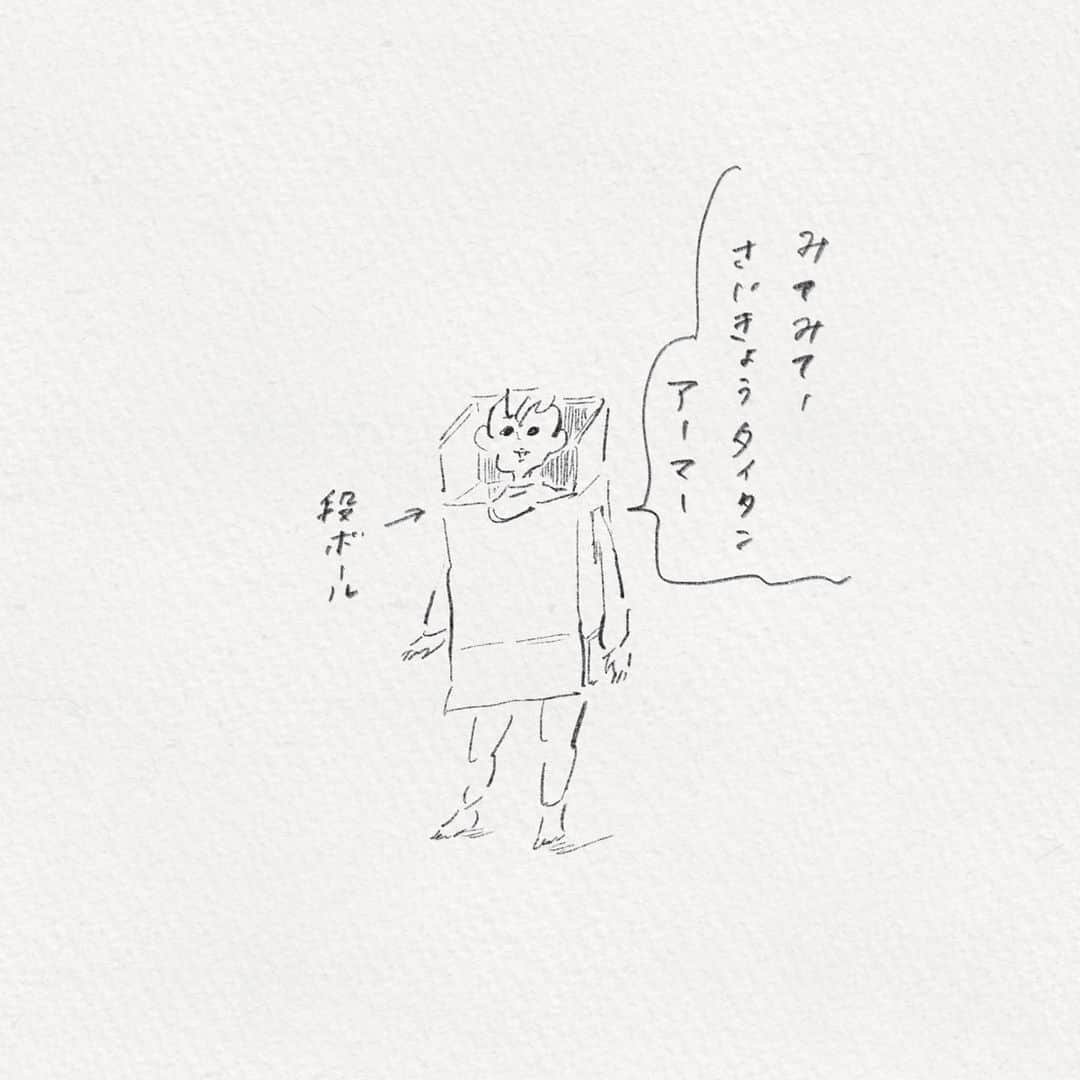 みてみてー
さいきょうタイタン
アーマー
段ボール